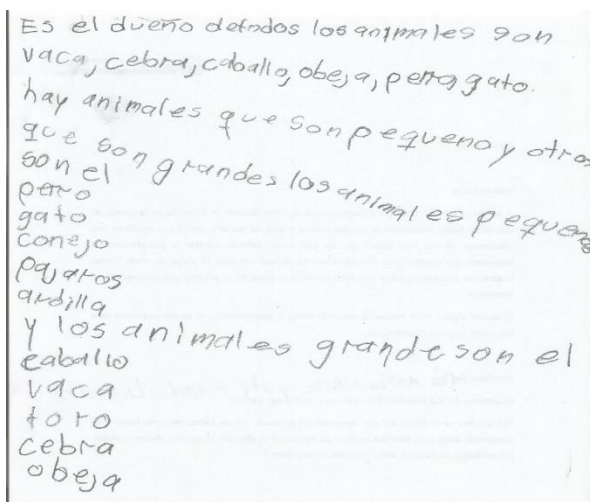 Es el dueño detodos los animales son
vaca, cebra, caballo, obeja, perro, gato.
hay animales que son pequeno y otros
que son grandes los animales pequenos
son el
perro
gato
conejo
pajaros
ardilla
y los animales grande son el
caballo
vaca
toro
cebra
obeja